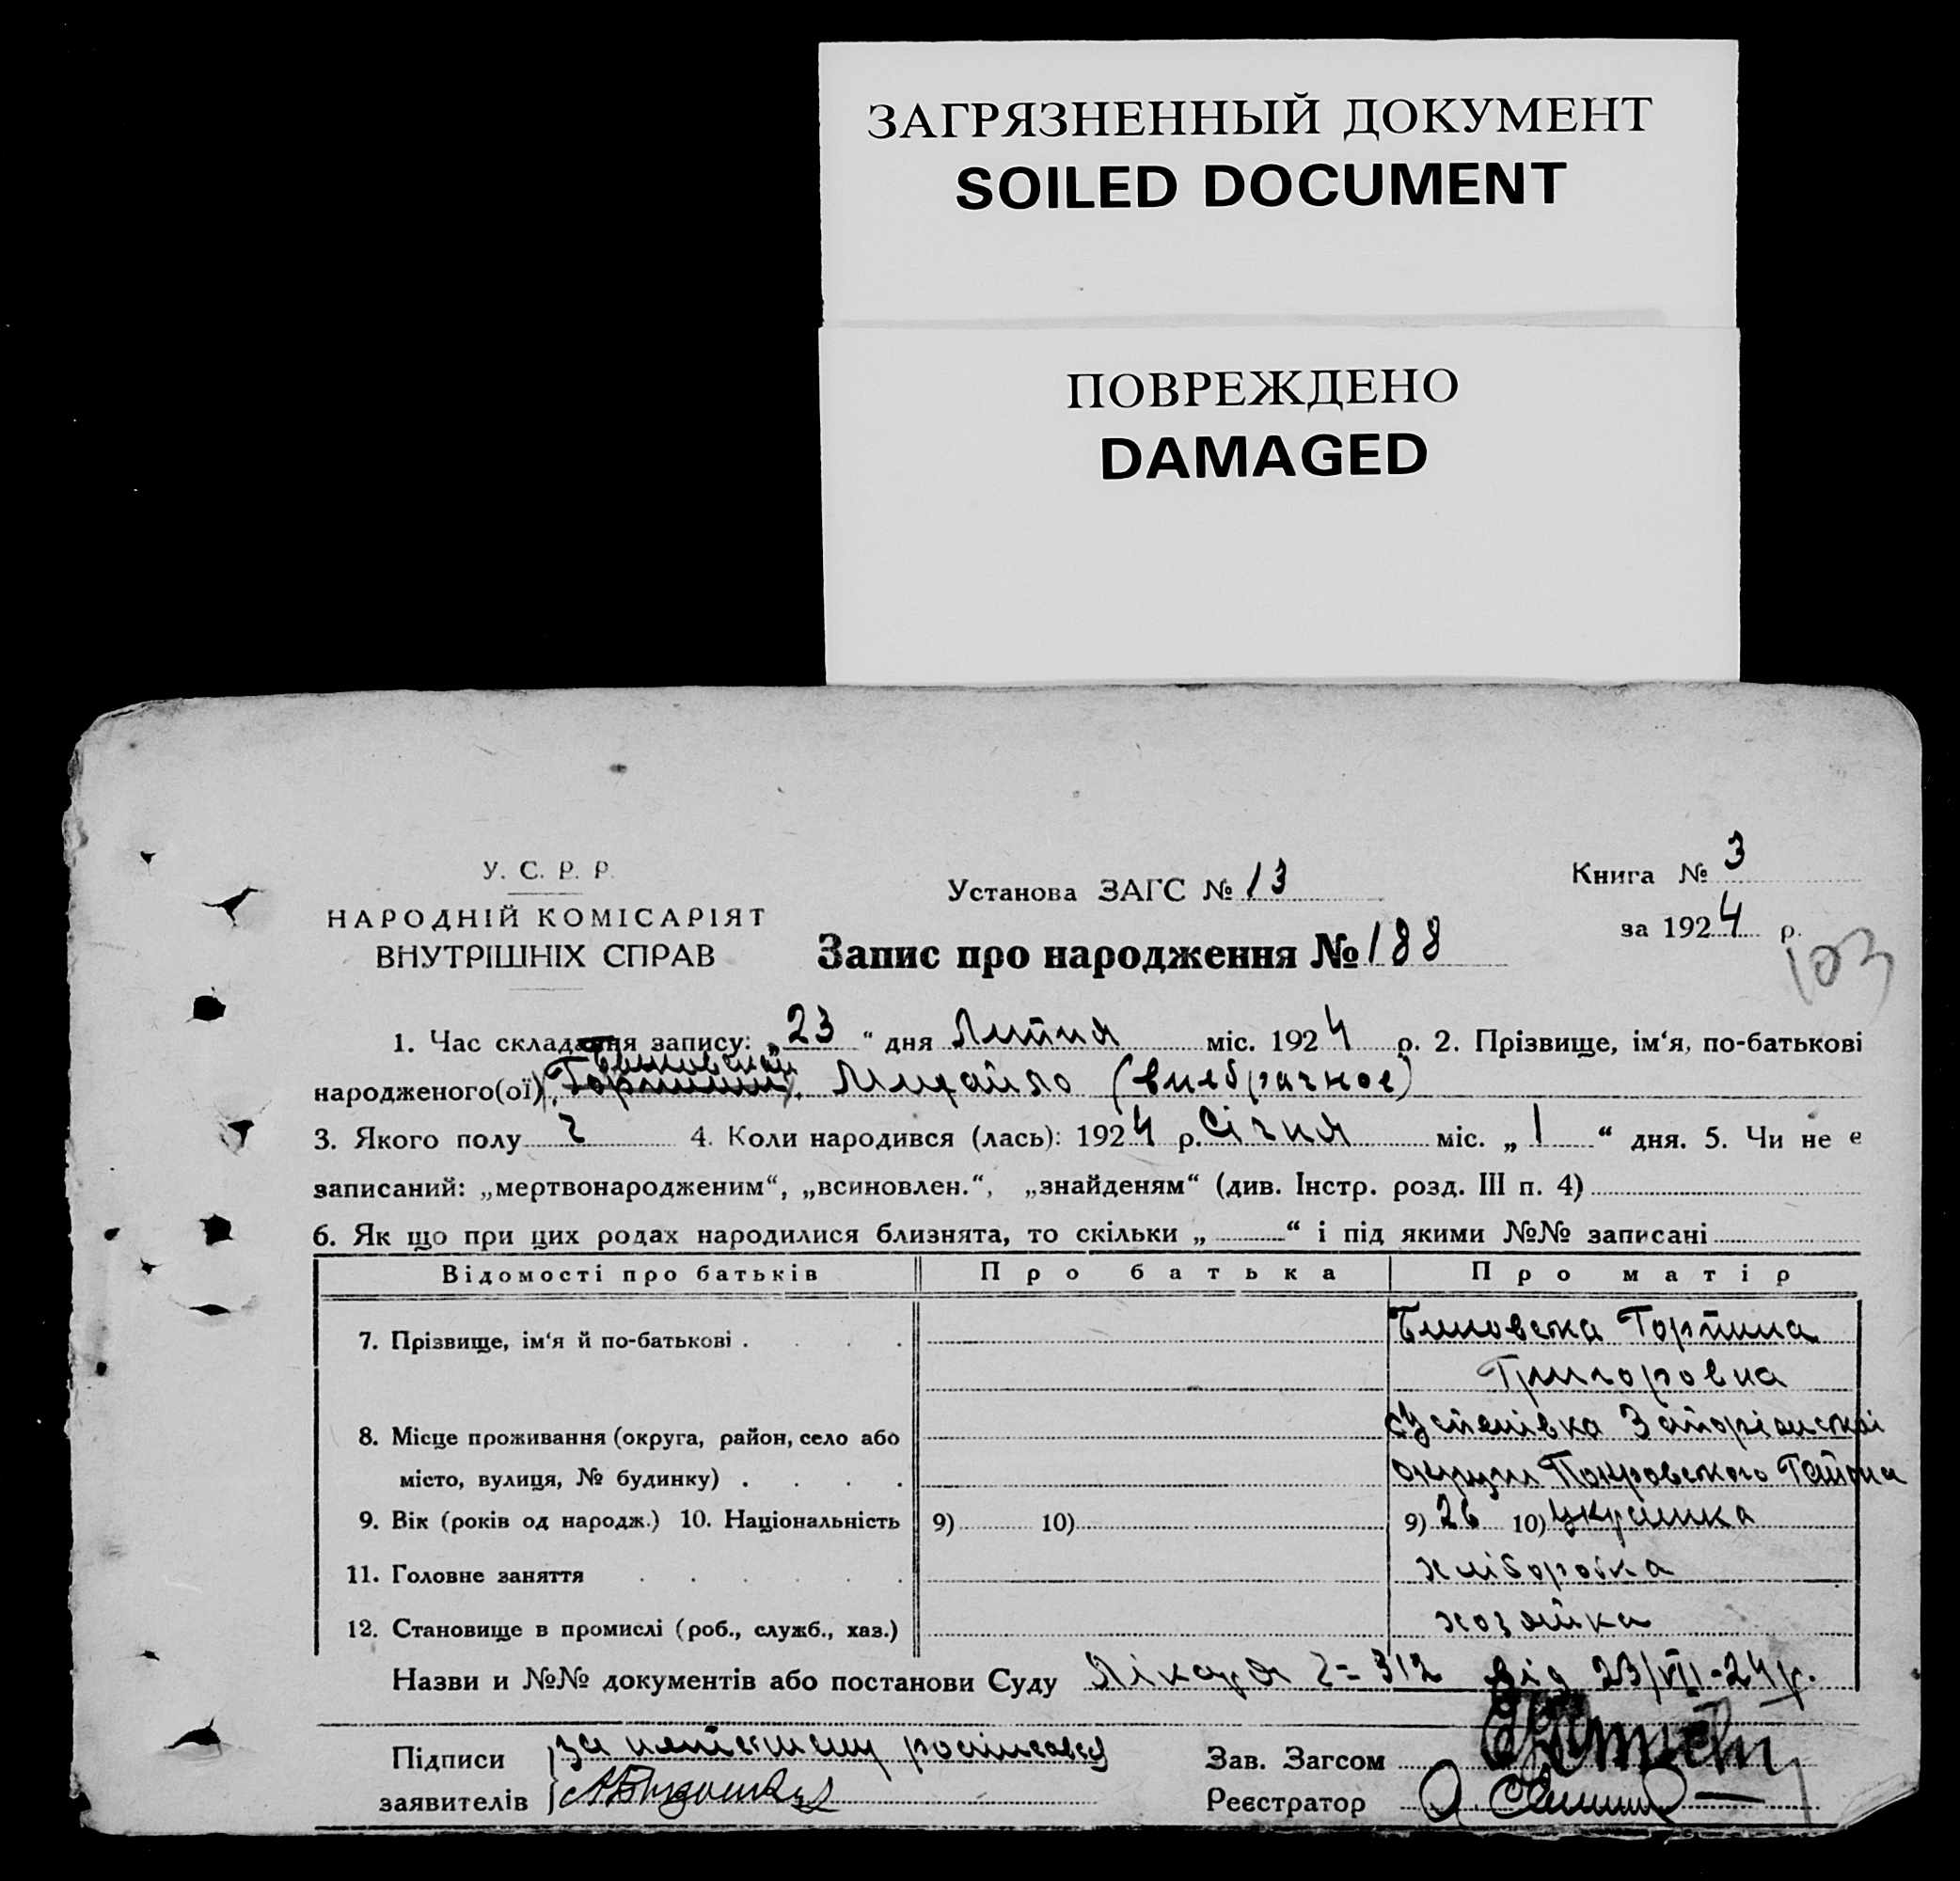 ЗАГРЯЗНЕННЫЙ ДОКУМЕНТ
SOILED DOCUMENT
ПОВРЕЖДЕНО
DAMAGED
У. С. Р. Р.
НАРОДНІЙ КОМІСАРІЯТ
ВНУТРІШНІХ СПРАВ
Установа ЗАГС № 13
Запис про народження № 188
Книга № 3
за 1924 р.
103
1. Час складання запису: „23“ дня Липня міс. 1924 р. 2. Прізвище, ім‘я, по-батькові
народженого(ої) Михайло (внебрачное)
3. Якого полу ч 4. Коли народився (лась): 1924 р. Січня міс. „1“ дня. 5. Чи не є
записаний: „мертвонародженим“, „всиновлен.“, „знайденям“ (див. Інстр. розд. III п. 4)
6. Як що при цих родах народилися близнята, то скільки „ “ і під якими №№ записані
Відомості про батьків Про батька Про матір
7. Прізвище, ім‘я й по-батькові . . . . Горпина
Григоровна
8. Місце проживання (округа, район, село або
місто, вулиця, № будинку) . . . . округи Покровського Района
9. Вік (років од народж.) 10. Національність 9) 10) 9) 26 10) українка
11. Головне заняття . . . . . . хліборобка
12. Становище в промислі (роб., служб., хаз.) хозяйка
Назви и №№ документів або постанови Суду Лікаря 312 від 23/VII-24 р.
Підписи за
заявителів
Зав. Загсом
Реєстратор